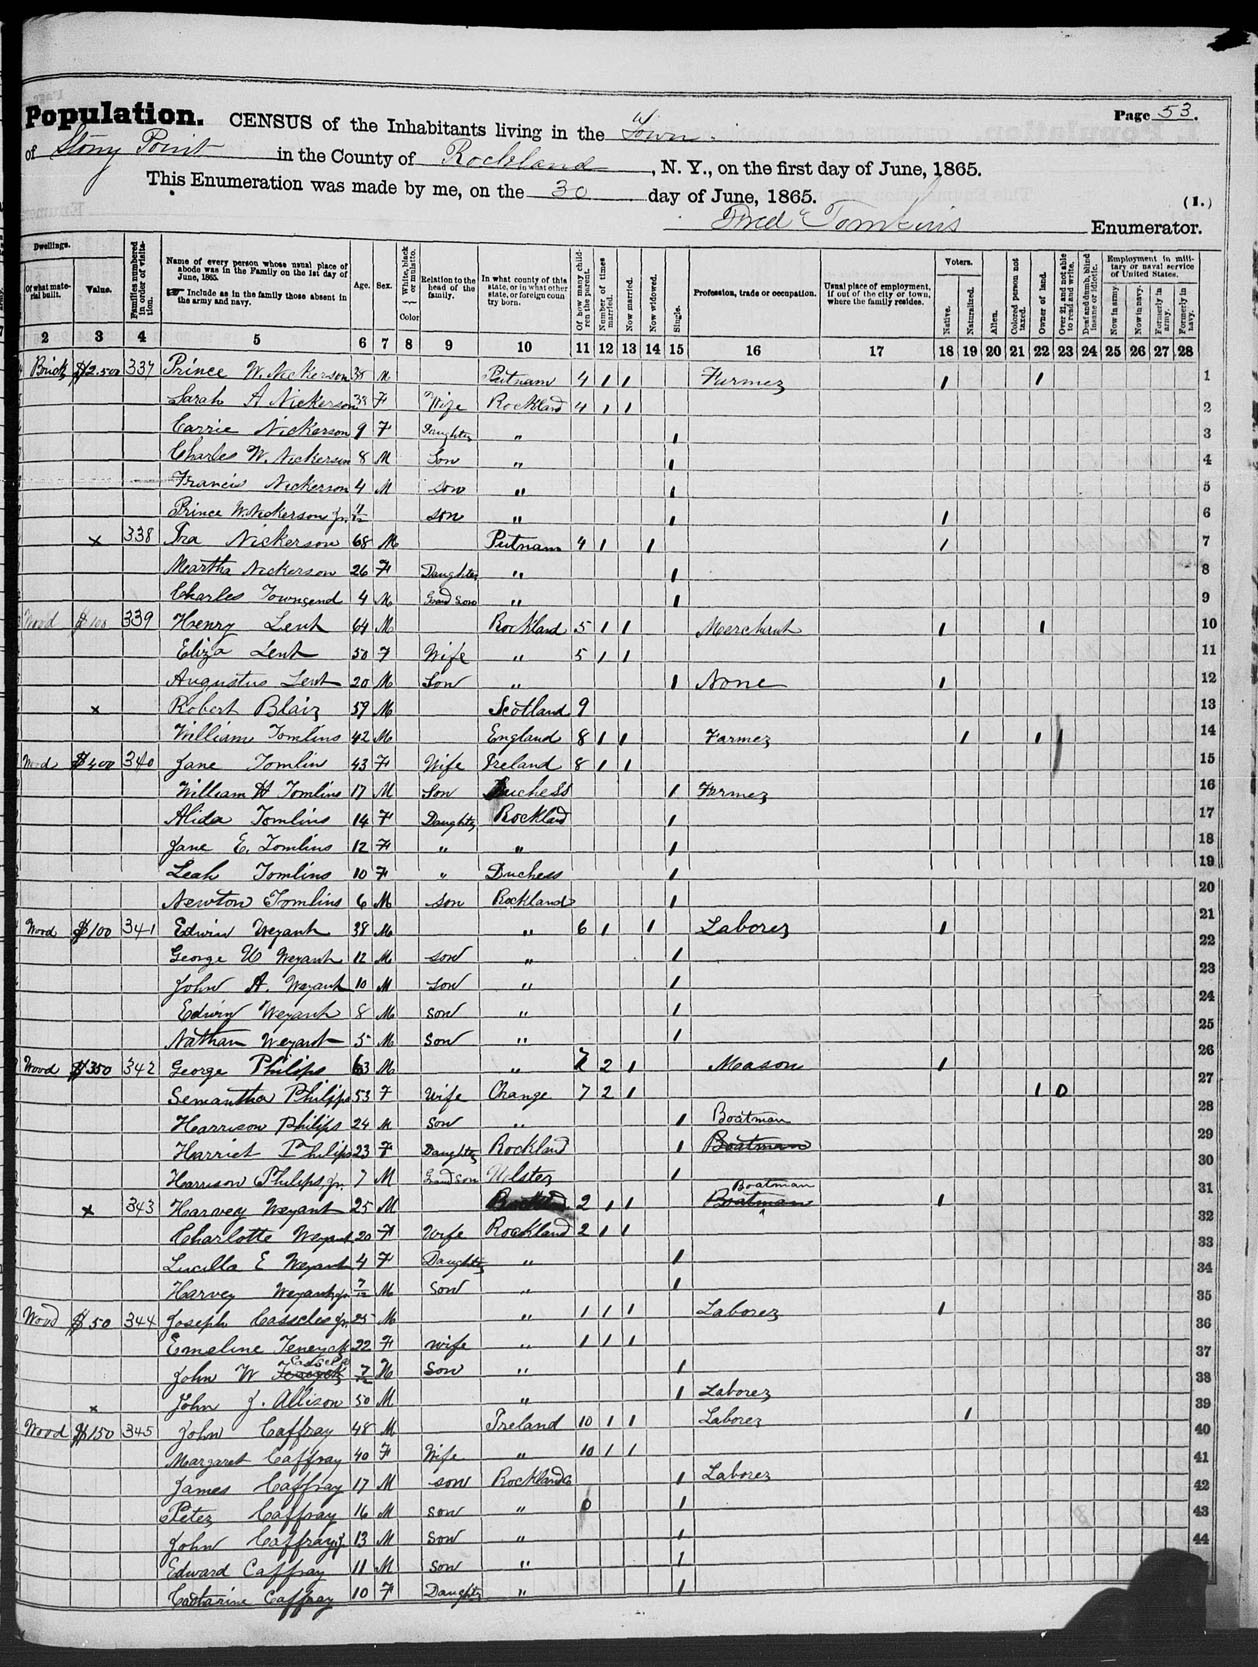 Population. CENSUS of the Inhabitants living in the Town Page 53.
of Stony Point in the County of Rockland, N. Y., on the first day of June, 1865.
This Enumeration was made by me, on the 30 day of June, 1865. (1.)
Fred Tomkins Enumerator.
Dwellings. Of what material built. Value. Families numbered in order of visitation. Name of every person whose usual place of abode was in the Family on the 1st day of June, 1865. Include as in the family those absent in the army and navy. Age. Sex. White, black or mulatto. Color Relation to the head of the family. In what county of this state, or in what other state, or foreign country born. Of how many children the parent. Number of times married. Now married. Now widowed. Single. Profession, trade or occupation. Usual place of employment, if out of the city or town, where the family resides. Voters. Native. Naturalized. Alien. Colored person not taxed. Owner of land. Over 21, and not able to read and write. Deaf and dumb, blind insane or idiotic. Employment in military or naval service of United States. Now in army. Now in navy. Formerly in army. Formerly in navy.
2 3 4 5 6 7 8 9 10 11 12 13 14 15 16 17 18 19 20 21 22 23 24 25 26 27 28
Brick $2.500 337 Prince W. Nickerson 38 M Putnam 4 1 1 Farmer 1 1 1
Sarah A Nickerson F Wife Rockland 4 1 1 2
Carrie Nickerson 9 F Daughter " 1 3
Charles W. Nickerson 8 M Son " 1 4
Francis Nickerson 4 M son " 1 5
Prince W. Nickerson Jr. son " 1 1 6
x 338 Ira Nickerson 68 M Putnam 4 1 1 1 7
Meartha Nickerson 26 F Daughter " 1 8
Charles Townsend 4 M Grand Son " 1 9
Wood $100 339 Henry Lent 64 M Rockland 5 1 1 Merchant 1 1 10
Eliza Lent 50 F Wife " 5 1 1 11
Augustus Lent 20 M Son " 1 None 1 12
x Robert Blair 59 M Scotland 9 13
William Tomlins 42 M England 8 1 1 Farmer 1 1 1 14
Wood $400 340 Jane Tomlin 43 F Wife Ireland 8 1 1 15
William H Tomlins 17 M Son Duchess 1 Farmer 16
Alida Tomlins 14 F Daughter Rockland 1 17
Jane E. Tomlins 12 F " " 1 18
Leah Tomlins 10 F " Duchess 1 19
Newton Tomlins 6 M son Rockland 1 20
Wood $100 341 Edwin Weyant 38 M " 6 1 1 Laborer 1 21
George W Weyant 12 M son " 1 22
John A. Weyant 10 M son " 1 23
Edwin Weyant 8 M son " 1 24
Nathan Weyant 5 M son " 1 25
Wood $350 342 George Philips 63 M " 7 2 1 Meason 1 26
Semantha Philips 53 F Wife Orange 7 2 1 1 0 27
Harrison Philips 24 M son " 1 Boatman 28
Harriet Philips 23 F Daughter Rockland 1 Boatman 29
Harrison Philips Jr. 7 M Grand son Ulster 1 30
x 343 Harvey Weyant 25 M Rockland 2 1 1 Boatman Boatman 1 31
Charlotte Weyant 20 F Wife Rockland 2 1 1 32
Lucilla E Weyant 4 F Daughter " 1 33
Harvey Weyant Jr 7/12 M Son " 1 34
Wood $50 344 Joseph Casscles Jr. 25 M " 1 1 1 Laborer 1 35
Emeline Teneyck 22 F wife " 1 1 1 36
John W Teneyck 7/12 M Son " 1 37
x John J. Allison 50 M " 1 Laborer 38
Wood $150 345 John Caffray 48 M Ireland 10 1 1 Laborer 1 39
Margaret Caffray 40 F Wife " 10 1 1 40
James Caffray 17 M son Rockland Co 1 Laborer 41
Peter Caffray 16 M son " 0 1 42
John Caffray Jr. 13 M son " 1 43
Edward Caffray 11 M son " 1 44
Catharine Caffray 10 F Daughter " 1